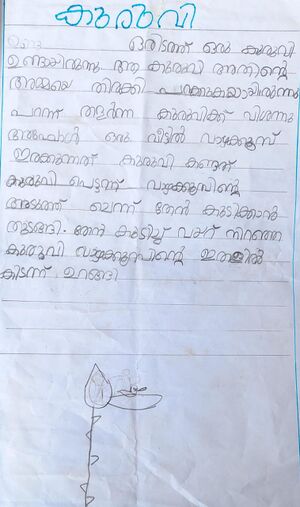 കുരുവി
ഒരിടത്ത് ഒരു കുരുവി
ഉണ്ടായിരുന്നു. ആ കുരുവി അതിന്റെ
അമ്മയെ തിരക്കി പറക്കുകയായിരുന്നു
പറന്ന് തളർന്ന കുരുവിക്ക് വിശന്നു
അപ്പോൾ ഒരു വീട്ടിൽ വാഴക്കൂമ്പ്
ഇരക്കുന്നത് കുരുവി കണ്ടത്
കുരുവി പെട്ടന്ന് വാഴക്കൂമ്പിന്റെ
അടുത്ത് ചെന്ന് തേൻ കുടിക്കാൻ
തുടങ്ങി. തേൻ കുടിച്ച് വയറ് നിറഞ്ഞ
കുരുവി വാഴക്കൂമ്പിന്റെ ഇതളിൽ
കിടന്ന് ഉറങ്ങി